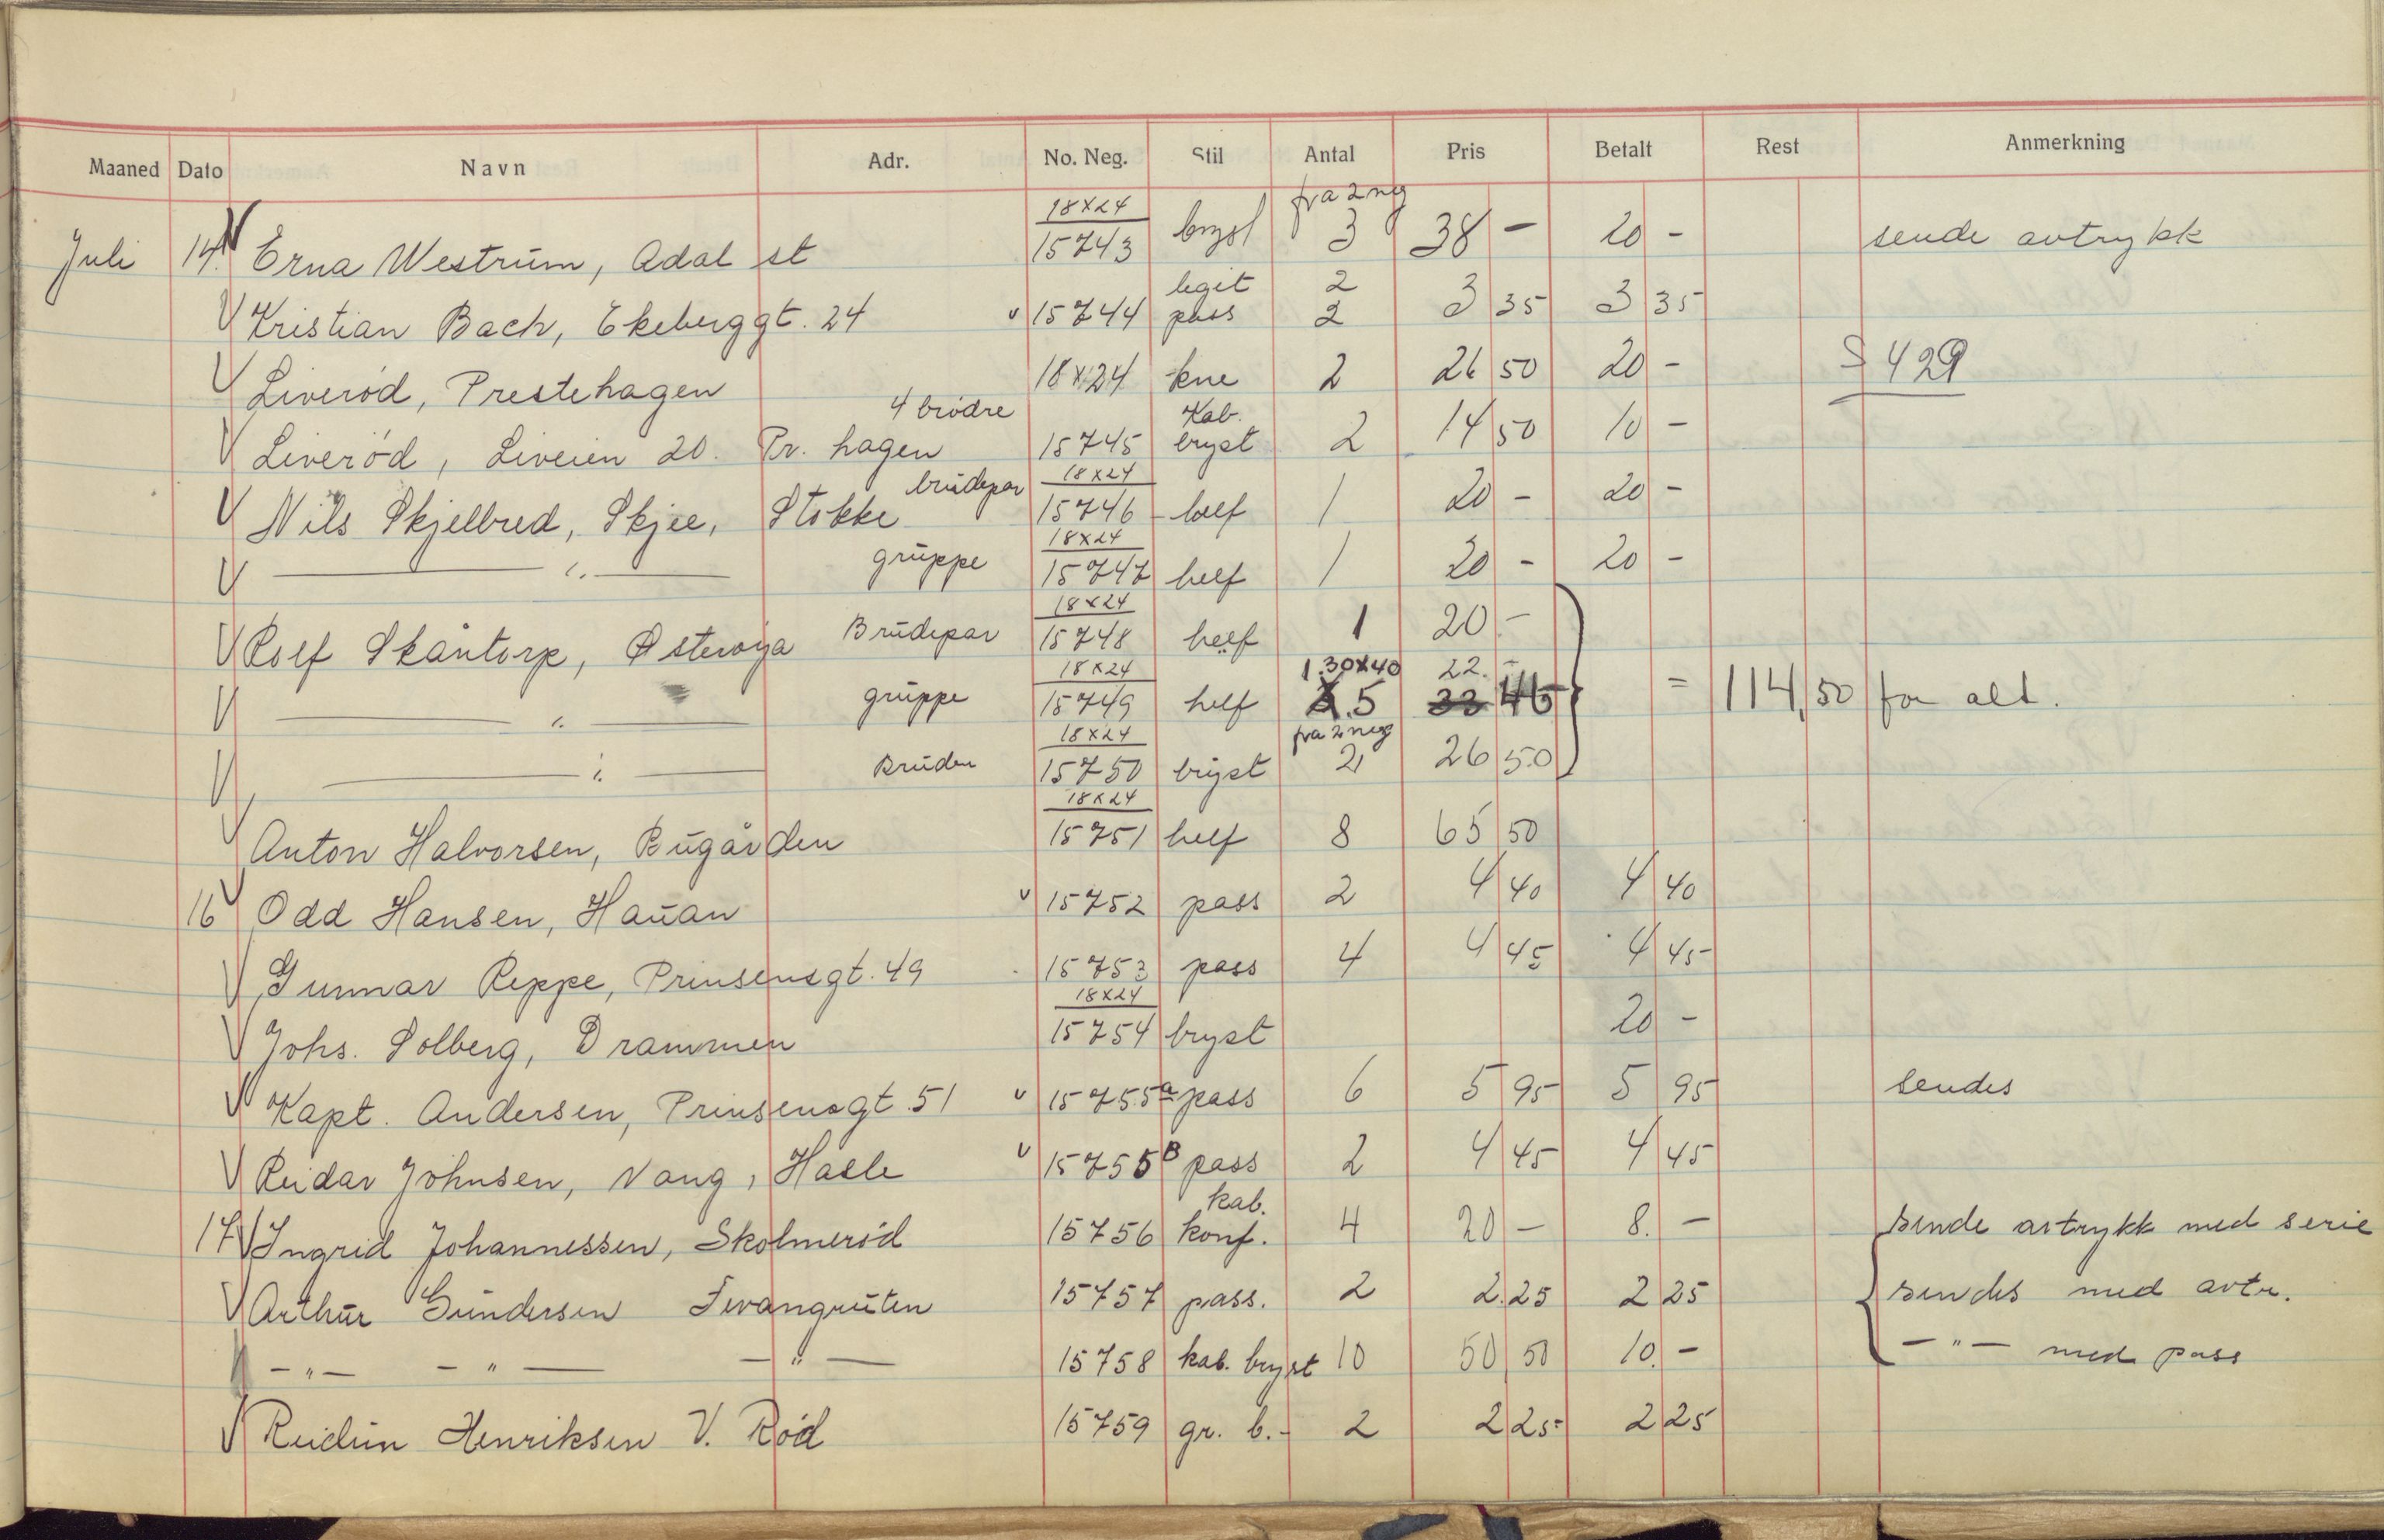 Maaned Dato Navn Adr. No. Neg. Stil Antal Pris Betalt Rest Anmerkning
18x24 fra 2 neg
Juli 14. Erna Westrüm, Adal st 15743 bryst 3 38 - 20 - sende avtrykk
legit 2
Kristian Bach, Ekeberggt. 24 15744 pass 2 3 35 3 35
Liveröd, Prestehagen 18x24 kne 2 26 50 20 - S 429
4 brödre Kab.
Liveröd, Liveien 20. Pr. hagen 15745 bryst 2 14 50 10 -
brüdepar 18x24
Nils Skjelbred, Skjee, Stokke 15746 helf 1 20 - 20 -
18x24
— " — grüppe 15747 helf 1 20 - 20 -
18x24
Rolf Skåntorp, Østeröya Brüdepar 15748 helf 1 20 -
18x24 1.30x40 22. -
— " — grüppe 15749 helf 5 33 46 = 114,50 for alt.
18x24 fra 2 neg
— " — Brüden 15750 bryst 2 26 50
18x24
Anton Halvorsen, Bügården 15751 helf 8 65 50
16 Odd Hansen, Haüan 15752 pass 2 4 40 4 40
Gunnar Reppe, Prinsensgt. 49 15753 pass 4 4 45 4 45
18x24
Johs. Solberg, Drammen 15754 bryst 20 -
Kapt. Andersen, Prinsensgt. 51 15755a pass 6 5 95 5 95 sendes
Reidar Johnsen, Nang, Hasle 15755B pass 2 4 45 4 45
kab.
17 Ingrid Johannessen, Skolmeröd 15756 konf. 4 20 - 8. - sende avtrykk med serie
Arthür Gündersen Fevangrüten 15757 pass. 2 2.25 2 25 sendes med avtr.
- " - - " - - " - 15758 kab. bryst 10 50 50 10. - - " - med pass
Reidün Henriksen V. Röd 15759 gr. b. - 2 2 25 2 25